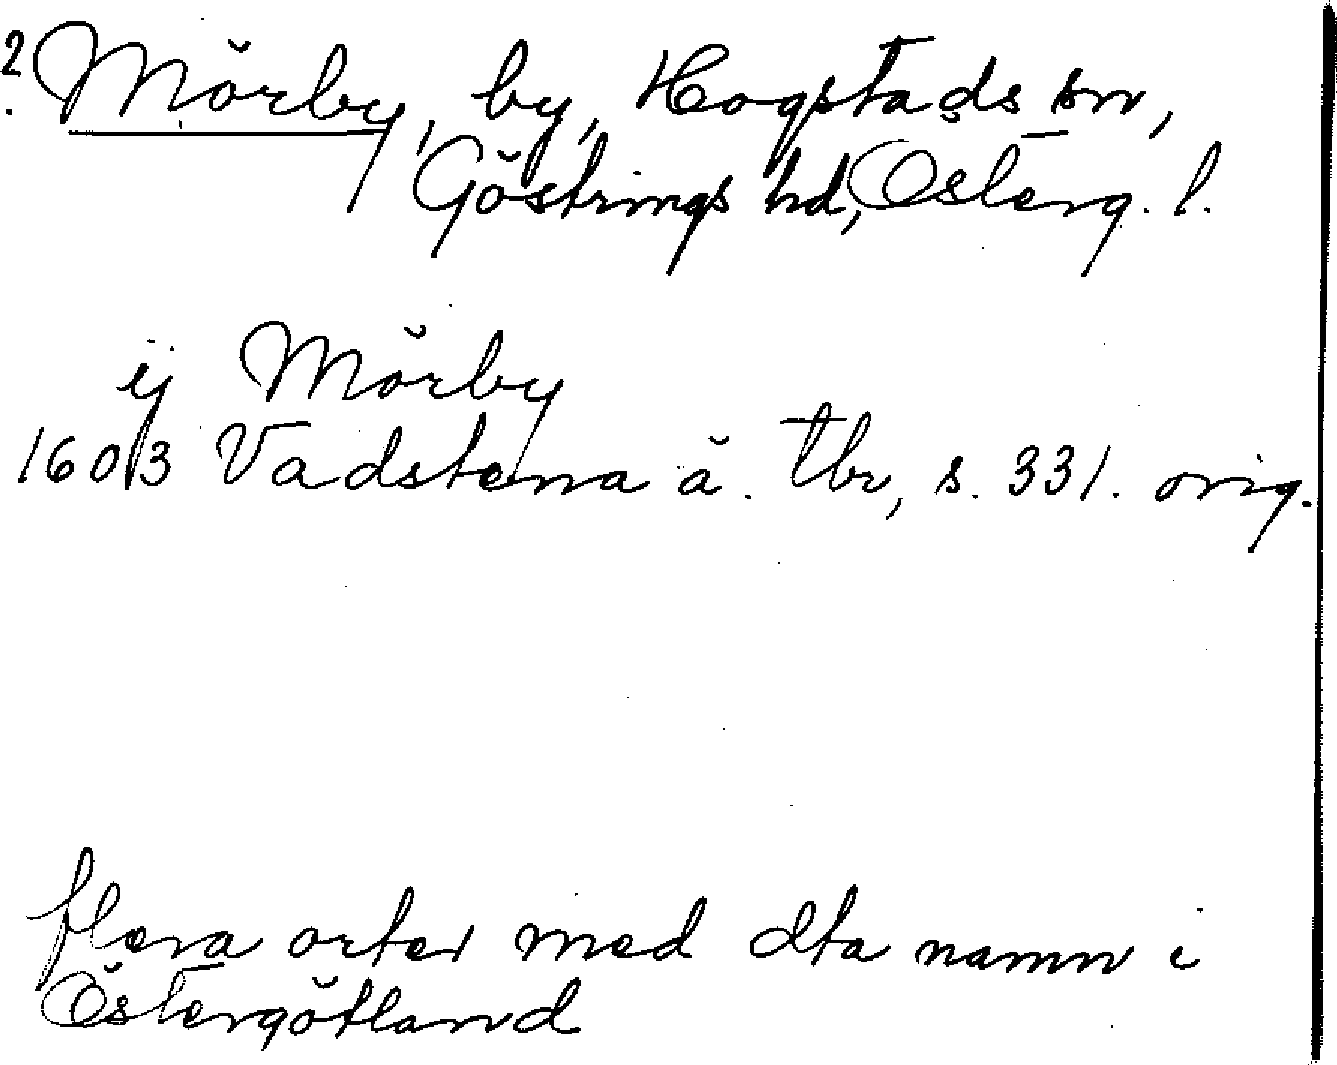 ? Mörby, by, Hogstads sn,
Göstrings hd, Österg. l.
ij Mörby
1603 Vadstena ä. tbr, s. 331. orig.
flera orter med dta namn i
Östergötland